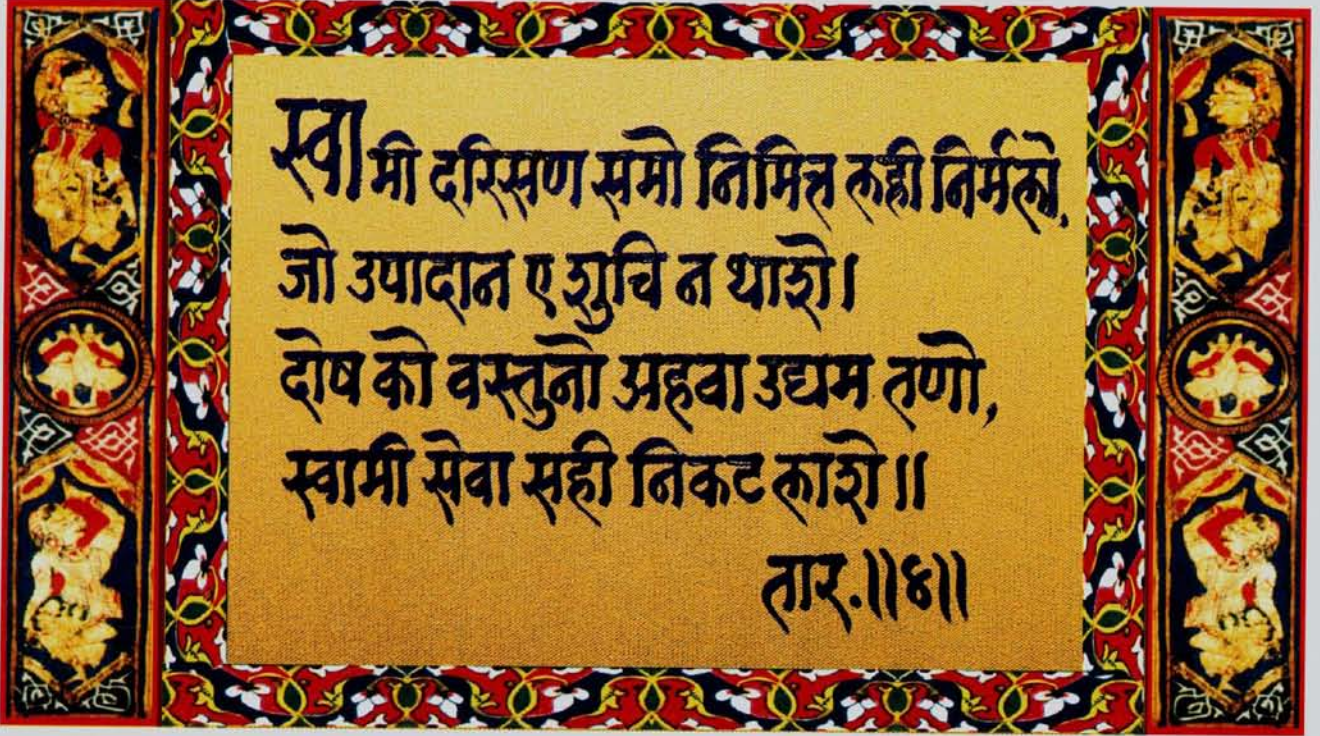 स्वामी दरिसण समो निमित्त लही निर्मलो,
जो उपादान ए शुचि न थाशे।
दोष को वस्तुनो अहवा उद्यम तणो,
स्वामी सेवा सही निकट लाशे॥
तार.॥४॥